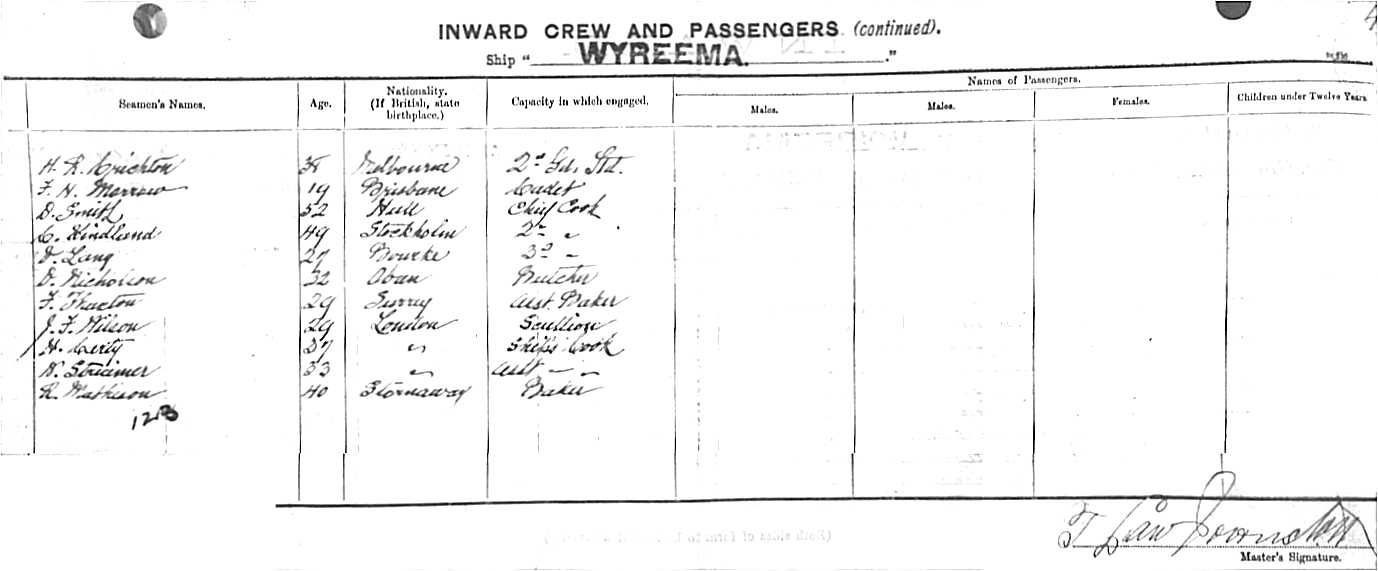 4
INWARD CREW AND PASSENGERS (continued).
Ship " WYREEMA. ."
Names of Passengers.
Seamen's Names. Age. Nationality. (If British, state birthplace.) Capacity in which engaged. Males. Males. Females. Children under Twelve Years
H. R. Crichton 38 Melbourne 2nd Gd. Std.
F. H. Morrow 19 Brisbane Cadet
D. Smith 52 Hull Chief Cook
C. Hindland 49 Stockholm 2nd "
D. Lang 27 Bourke 3d "
D. Nicholson 32 Oban Butcher
F. Thaxton 29 Surrey Asst. Baker
J. F. Wilson 29 London Scullion
H. Certy 37 " Ship's Cook
W. Streimer 33 " Asst " "
R. Matheson 40 Stornaway Baker
123
Master's Signature.